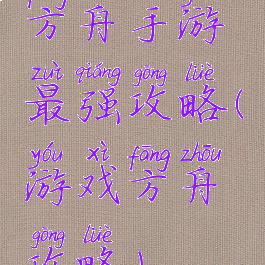 方舟手游
zuì qiáng gōng lüè
最强攻略(
yóu xì fāng zhōu
游戏方舟
gōng lüè
攻略)